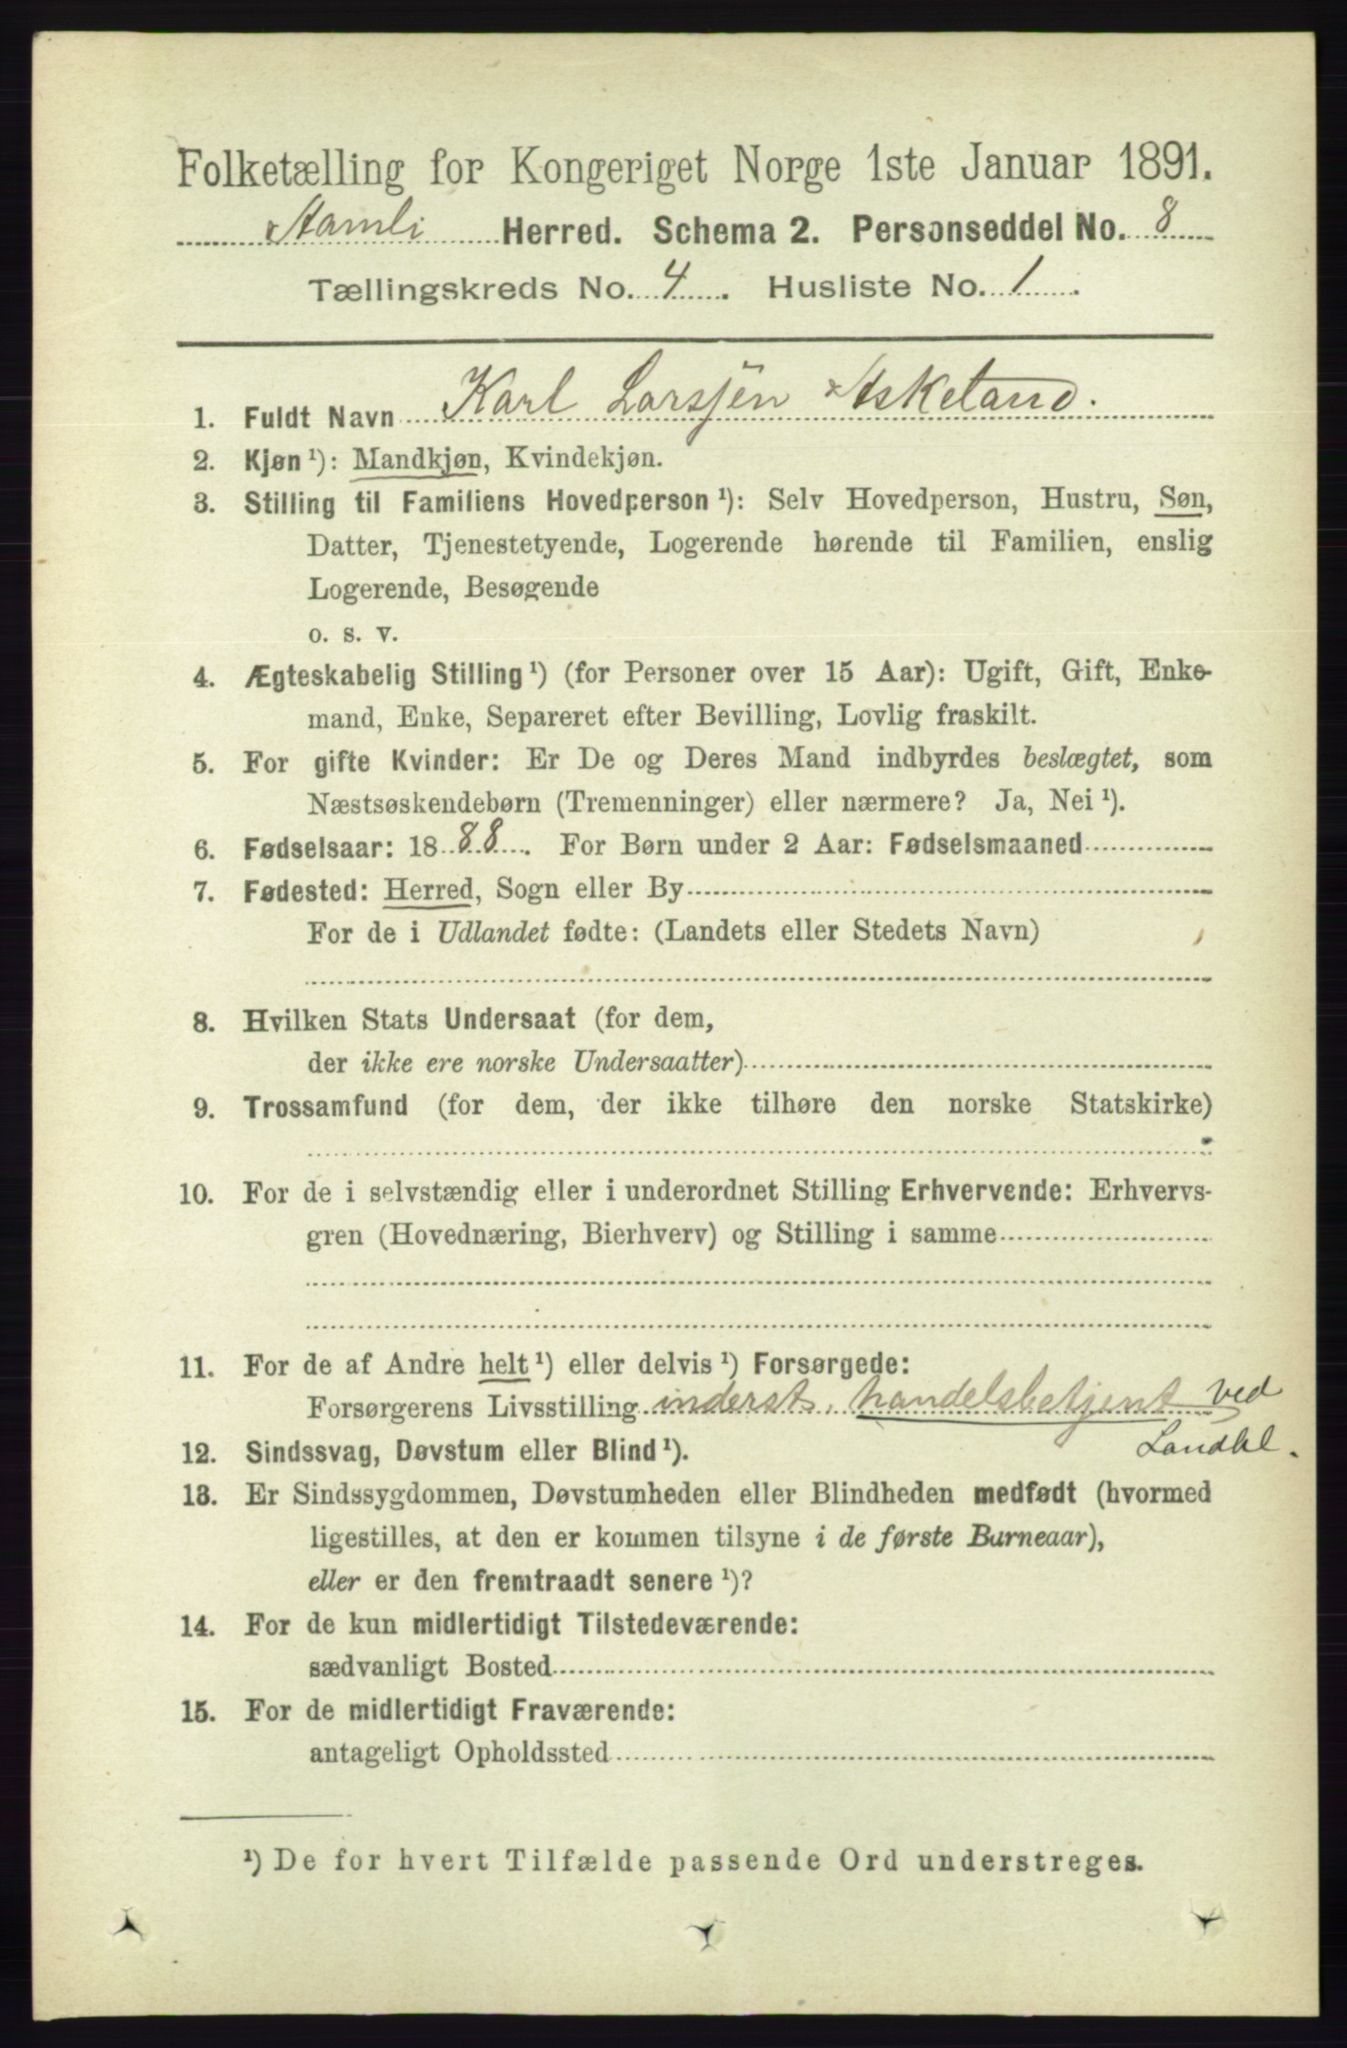 Folketælling for Kongeriget Norge 1ste Januar 1891.
Aamli Herred. Schema 2. Personseddel No. 8
Tællingskreds No. 4. Husliste No. 1.
1. Fuldt Navn Karl Larsen Askeland.
2. Kjøn ¹): Mandkjøn, Kvindekjøn.
3. Stilling til Familiens Hovedperson ¹): Selv Hovedperson, Hustru, Søn,
Datter, Tjenestetyende, Logerende hørende til Familien, enslig
Logerende, Besøgende
o. s. v.
4. Ægteskabelig Stilling ¹) (for Personer over 15 Aar): Ugift, Gift, Enke-
mand, Enke, Separeret efter Bevilling, Lovlig fraskilt.
5. For gifte Kvinder: Er De og Deres Mand indbyrdes beslægtet, som
Næstsøskendebørn (Tremenninger) eller nærmere? Ja, Nei ¹).
6. Fødselsaar: 1888. For Børn under 2 Aar: Fødselsmaaned
7. Fødested: Herred, Sogn eller By
For de i Udlandet fødte: (Landets eller Stedets Navn)
8. Hvilken Stats Undersaat (for dem,
der ikke ere norske Undersaatter)
9. Trossamfund (for dem, der ikke tilhøre den norske Statskirke)
10. For de i selvstændig eller i underordnet Stilling Erhvervende: Erhvervs-
gren (Hovednæring, Bierhverv) og Stilling i samme
11. For de af Andre helt ¹) eller delvis ¹) Forsørgede:
Forsørgerens Livsstilling inderst, handelsbetjent ved
Landhl.
12. Sindssvag, Døvstum eller Blind ¹).
13. Er Sindssygdommen, Døvstumheden eller Blindheden medfødt (hvormed
ligestilles, at den er kommen tilsyne i de første Barneaar),
eller er den fremtraadt senere ¹)?
14. For de kun midlertidigt Tilstedeværende:
sædvanligt Bosted
15. For de midlertidigt Fraværende:
antageligt Opholdssted
¹) De for hvert Tilfælde passende Ord understreges.